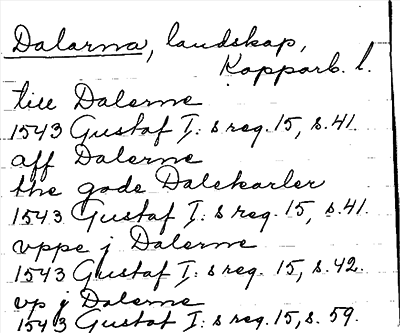 Dalarna, landskap,
Kopparb. l.
till Dalerne
1543 Gustaf I:s reg. 15, s. 41.
aff Dalerne
the gode Dalekarler
1543 Gustaf I:s reg. 15, s. 41.
vppe j Dalerne
1543 Gustaf I:s reg. 15, s. 42.
vp j Dalerne
1543 Gustaf I:s reg. 15, s. 59.